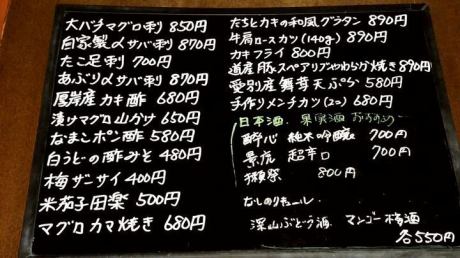 大バチマグロ刺 850円
自家製〆サバ刺 870円
たこ足刺 700円
あぶり〆サバ刺 870円
厚岸産 カキ酢 680円
漬けマグロ山かけ 650円
なまこポン酢 580円
白うどの酢みそ 480円
梅ザーサイ 400円
米茄子田楽 500円
マグロカマ焼き 680円
たちとカキの和風グラタン 890円
牛肩ロースカツ(140g) 890円
カキフライ 800円
道産豚スペアリブやわらか焼き 890円
愛別産 舞茸天ぷら 580円
手作りメンチカツ(2コ) 680円
日本酒、果実酒 おすすめ
酔心 純米吟醸 700円
景虎 超辛口 700円
獺祭 800円
なしのリキュール
深山ぶどう酒 マンゴー梅酒
各550円